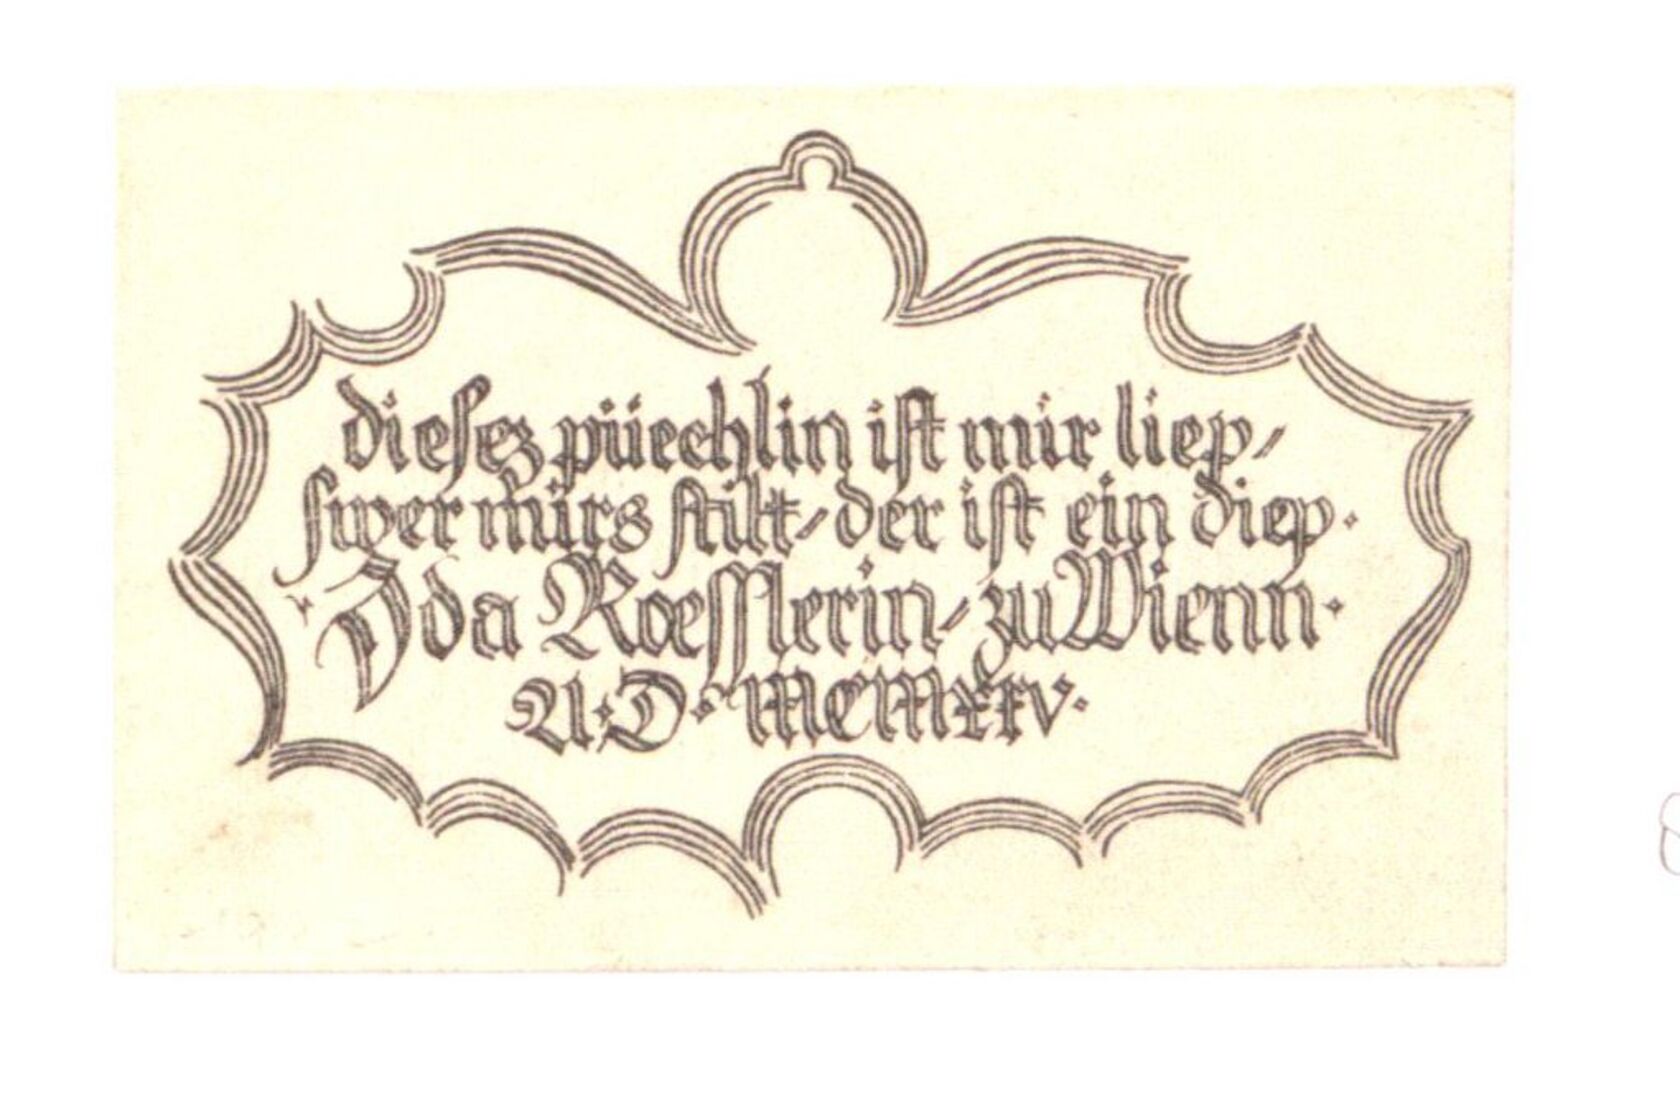 dieſez püechlin iſt mir liep/
ſwer mürs ſtilt/der iſt ein diep·
Ida Rœſſlerin/zu Wienn·
A·D·MCMXXV·